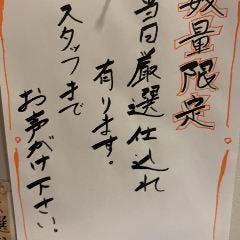 数量限定
当日厳選仕込れ
有ります。
スタッフまで
お声がけ下さい!